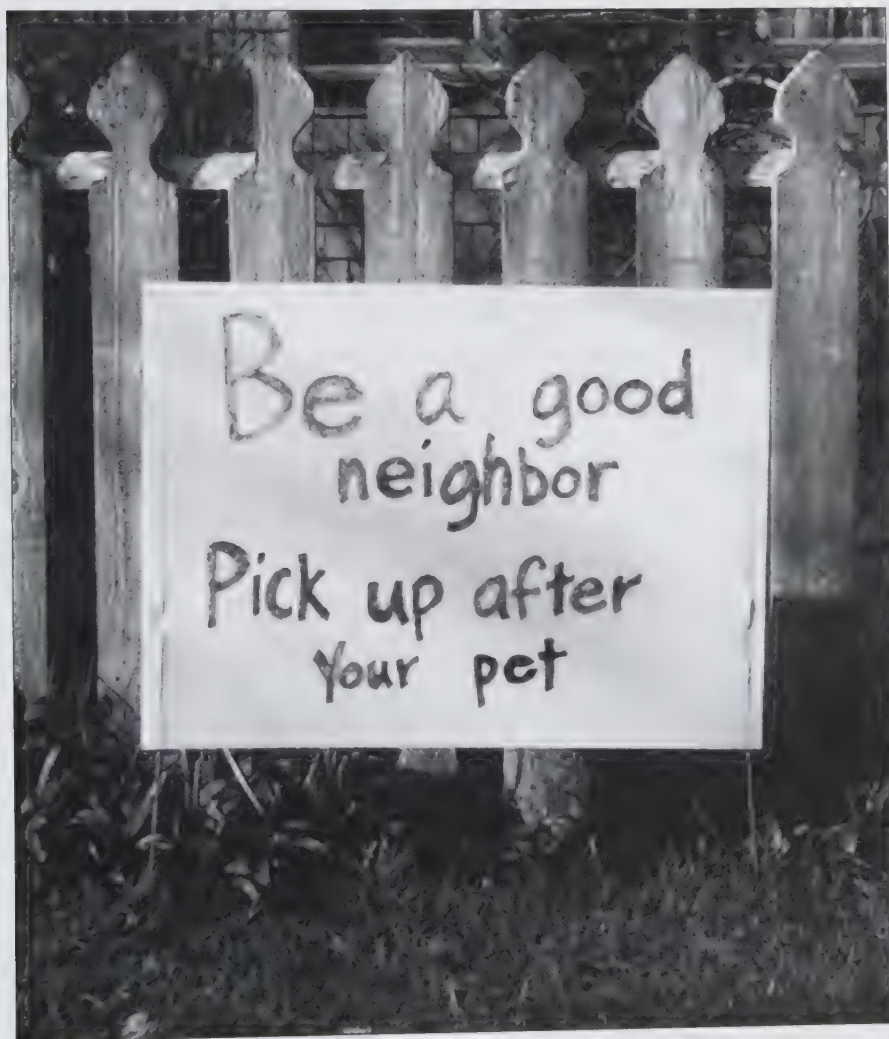 Be a good
neighbor
Pick up after
your pet